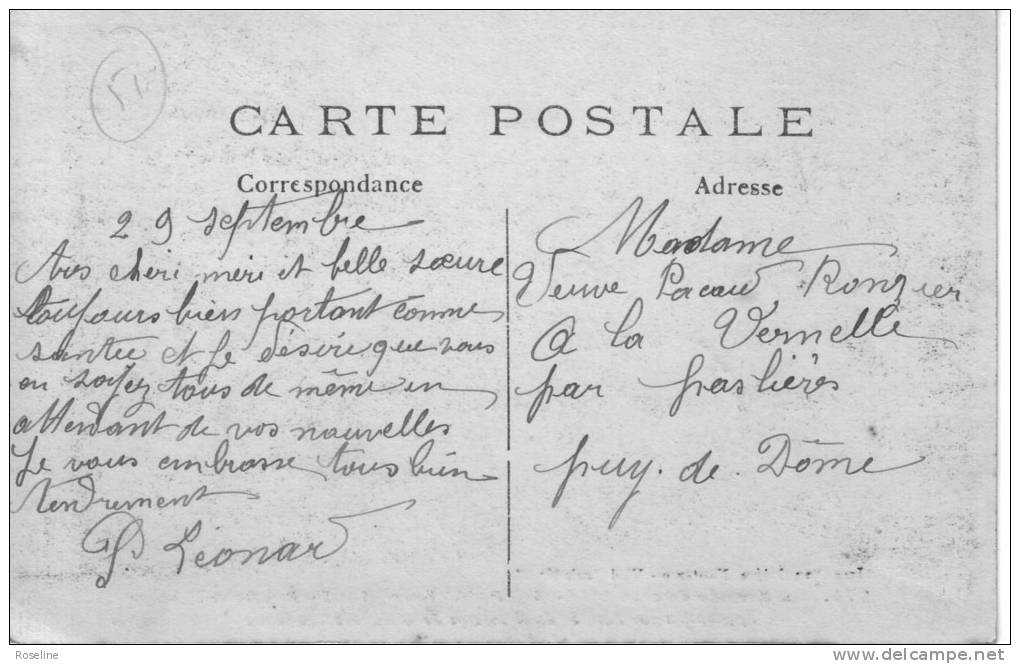 51
CARTE POSTALE
Correspondance
29 septembre
tres cheri meri et belle sœure
toujours bien portant comme
santee et Je désire que vous
en soyez tous de même en
attendant de vos nouvelles
Je vous embrasse tous bien
tendrement
Léonar
Adresse
Madame
Veuve Pacaud Rongier
a la Vernelle
par
puy. de. Dôme
Roseline
www.delcampe.net